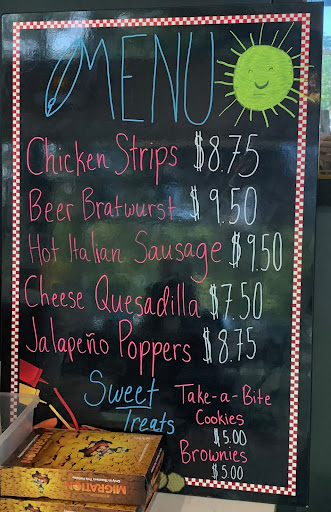 MENU
Chicken Strips $8.75
Beer Bratwurst $9.50
Hot Italian Sausage $9.50
Cheese Quesadilla $7.50
Jalapeño Poppers $8.75
Sweet Treats
Take-a-Bite
Cookies
$5.00
Brownies
$5.00
MIGRATION